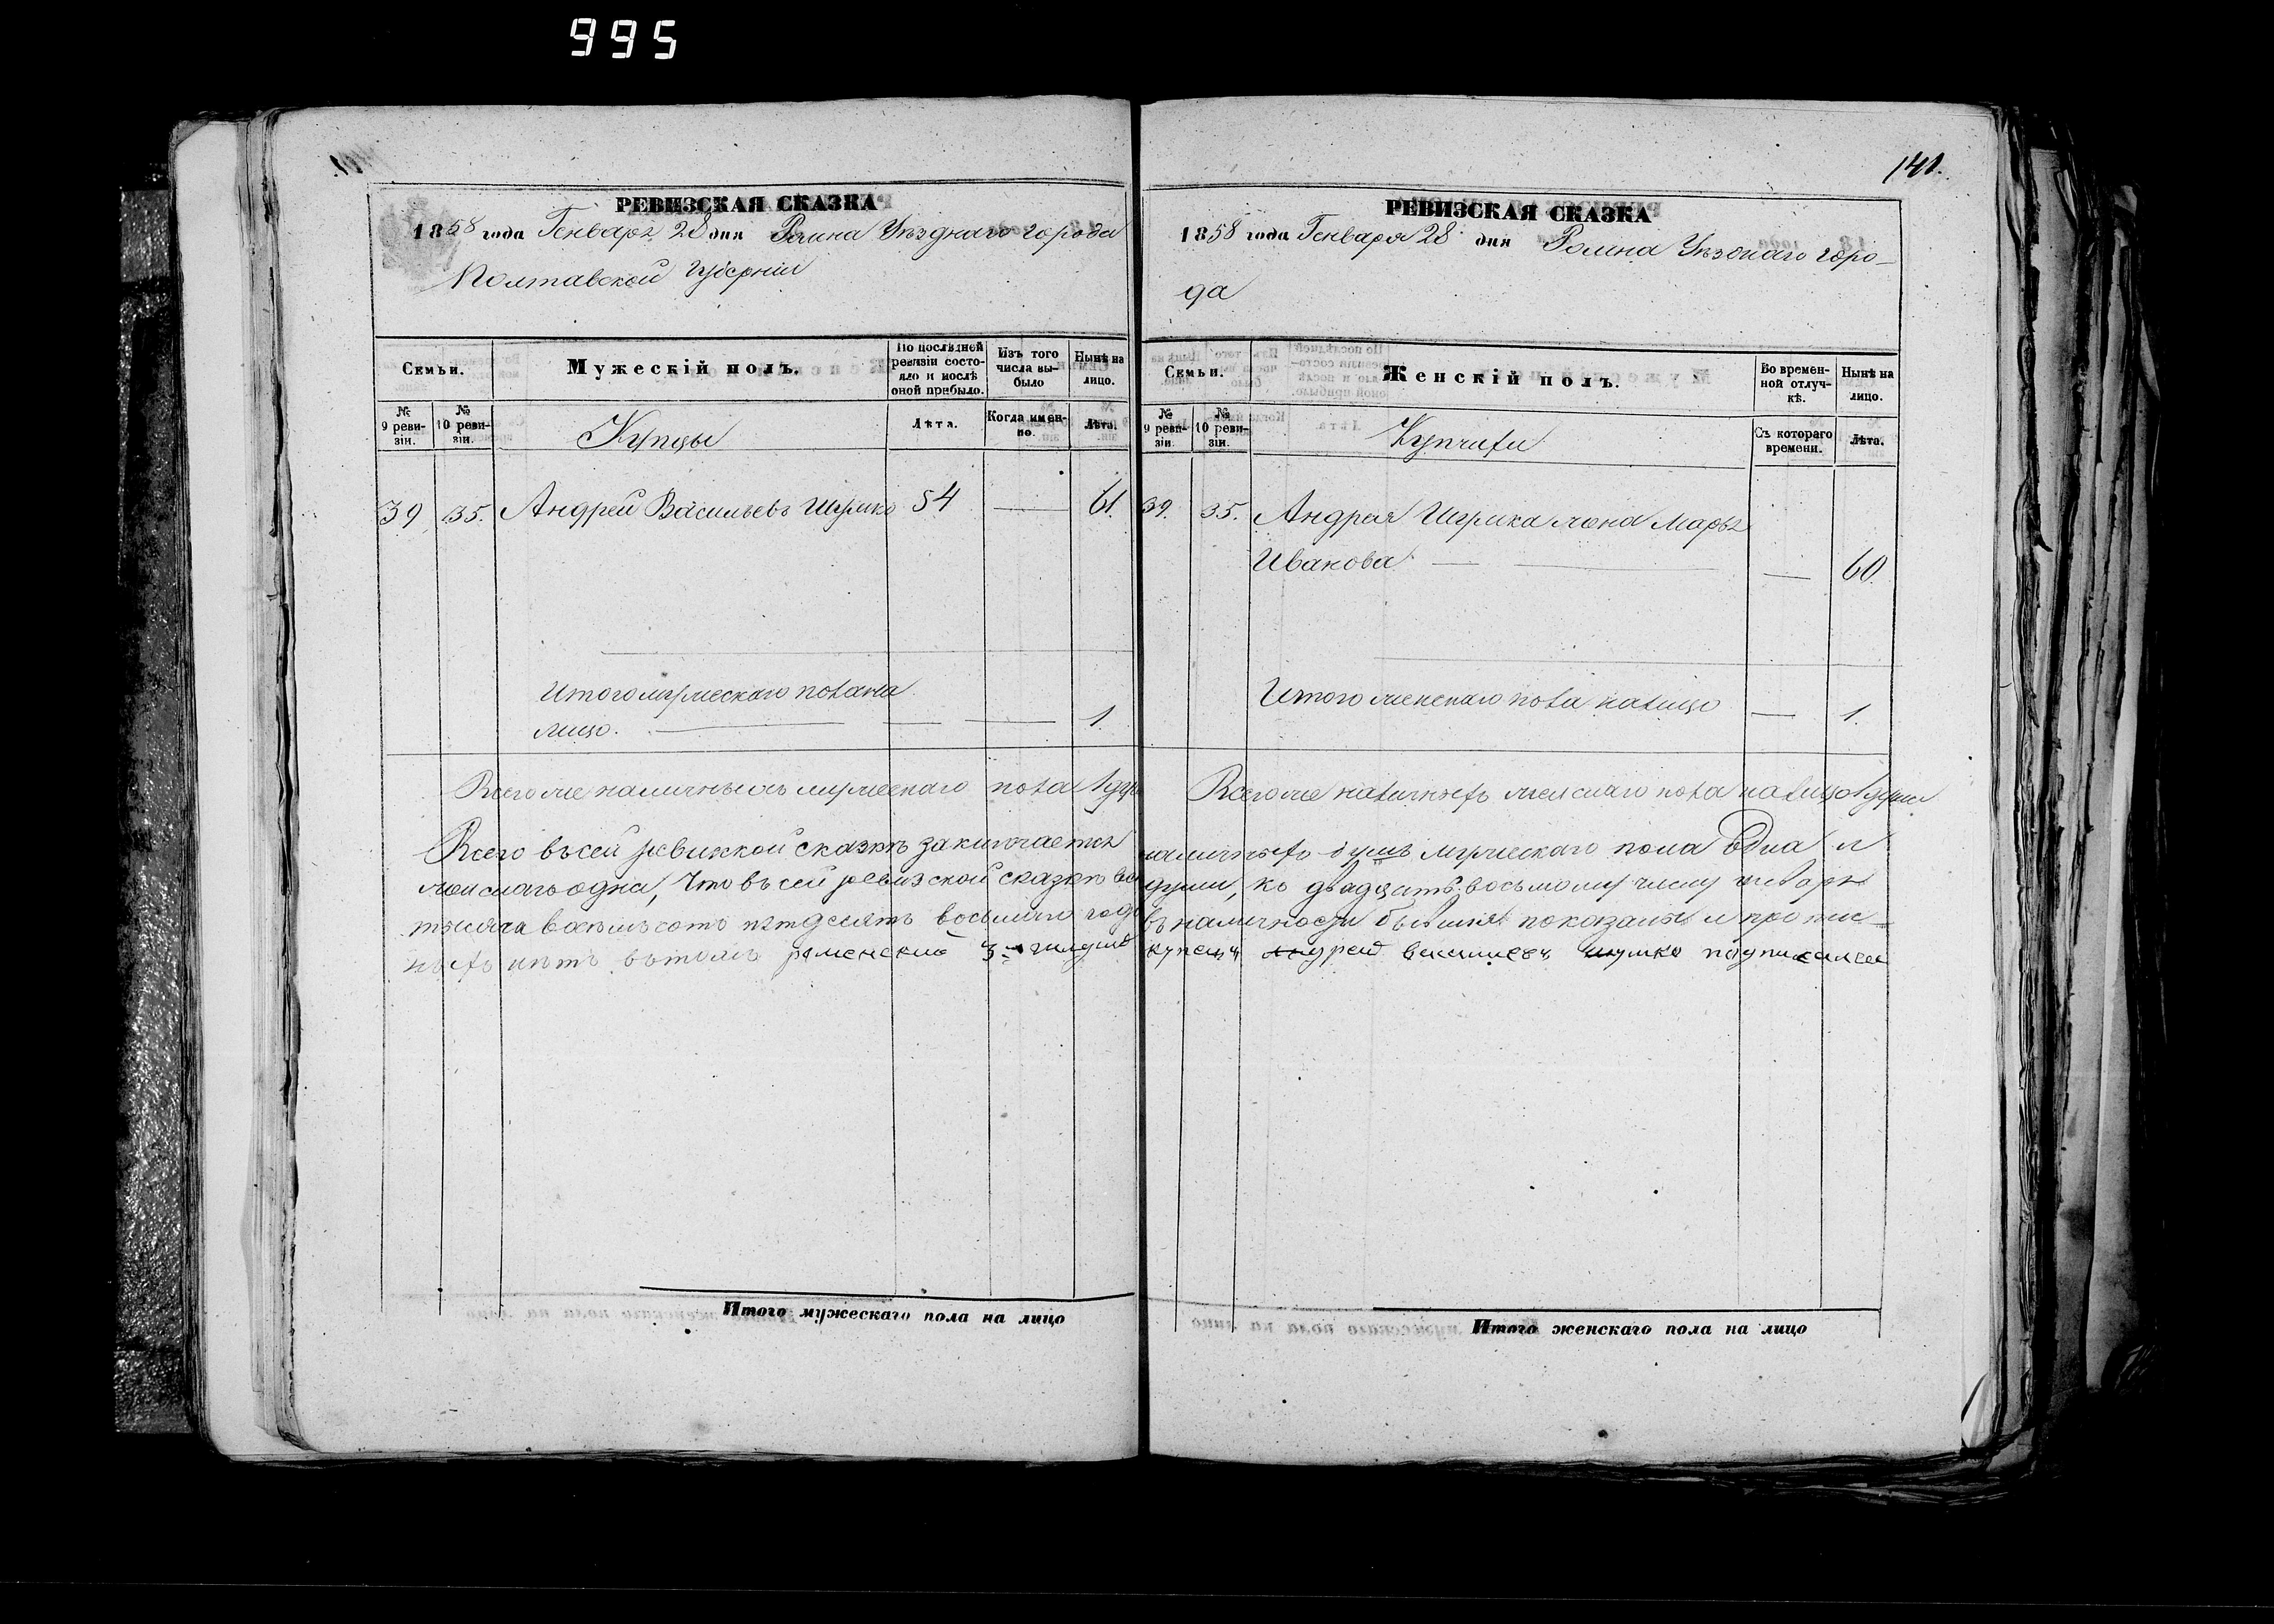 995
РЕВИЗСКАЯ СКАЗКА
1858 года Генваря 28 дня Ромна Уѣзднаго города
Полтавской Губерніи
Семьи.
Мужескій полъ.
По послѣдней ревизіи состояло и послѣ оной прибыло.
Изъ того числа выбыло
Нынѣ на лицо.
№ 9 ревизіи.
№ 10 ревизіи.
Купцы
Лѣта.
Когда именно.
Лѣта.
39 35. Андрей Васильевъ Шумко 54 — 61.
Итого мужескаго пола на
лицо. — — — 1.
Всего же наличныхъ мужескаго пола 1 душ
Всего въ сей ревизкой сказкѣ заключается
женскаго одна, Что въ сей ревизской сказкѣ все
тысяча восемьсотъ пятдесятъ восьмаго года
ныхъ нѣтъ въ томъ роменский 3-й гилдии
Итого мужескаго пола на лицо
141.
РЕВИЗСКАЯ СКАЗКА
1858 года Генваря 28 дня Ромна Уѣзднаго горо-
да
Семьи.
Женскій полъ.
Во временной отлучкѣ.
Нынѣ на лицо.
№ 9 ревизіи.
№ 10 ревизіи.
Купчихи
Съ котораго времени.
Лѣта.
39. 35. Андрея Шумка жона Марья
Иванова — — — 60.
Итого женскаго пола налицо — 1.
Всего же наличныхъ женскаго пола налицо 1 душа
наличныхъ душъ мужескаго пола одна и
души, ко двадцать восьмому числу генваря
въ наличности бывшия показаны и пропис-
купецъ андрей василиевъ шумко подписался
Итого женскаго пола на лицо